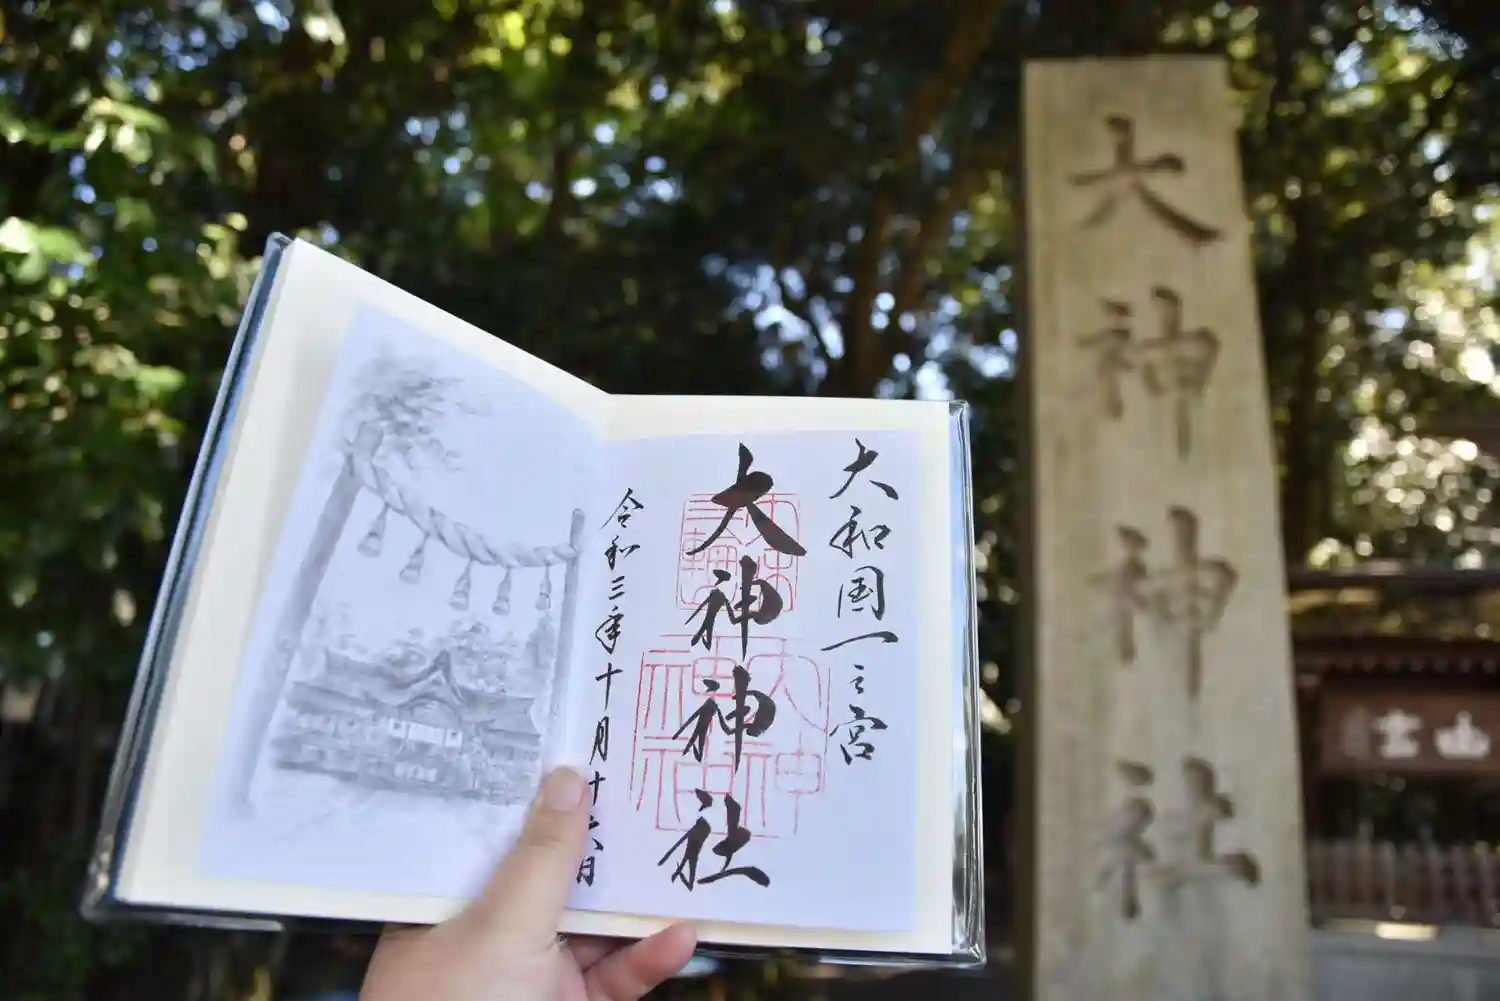 大和国一之宮
大神神社
三輪
大神神社
令和三年十月十六日
大神神社